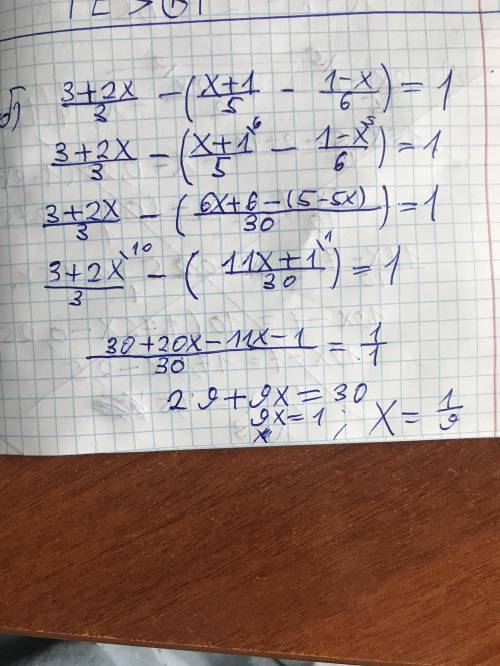 б) (3+2x)/3 − ((x+1)/5 − (1−x)/6) = 1
(3+2x)/3 − ((x+1)/5 ⁶ − (1−x)/6 ⁵) = 1
(3+2x)/3 − ((6x+6−(5−5x))/30) = 1
(3+2x)/3 ¹⁰ − ((11x+1)/30 ¹) = 1
(30+20x−11x−1)/30 = 1/1
29+9x=30
9x=1 ; x = 1/9